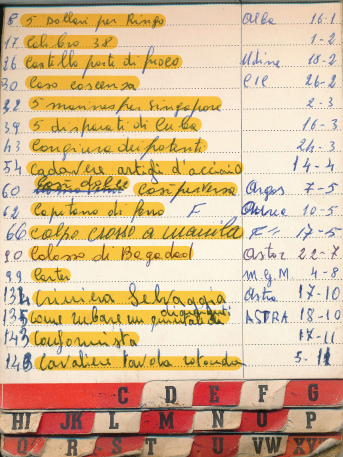 8 5 Dollari per Ringo Alba 16-1
17 Calibro 38 1-2
26 Castello porte di fuoco Udine 18-2
30 Caso coscenza CIC 26-2
32 5 marines per Singapore 2-3
39 5 disperati di Cuba 16-3
43 Congiura dei potenti 24-3
54 Cadavere artigli d'acciaio 14-4
60 Così dolce Così perversa Argos 7-5
62 Capitano di ferro F 10-5
66 Colpo grosso a manila F 17-5
90 Colosso di Bagdad Astor 22-7
99 Carter M.G.M. 4-8
134 Criniera Selvaggia Astra 17-10
135 come rubare un quintale di diamanti ASTRA 18-10
143 Conformista 17-11
146 Cavaliere tavola rotonda 5-11
C D E F G
HI JK L M N O P
Q R S T U VW XY